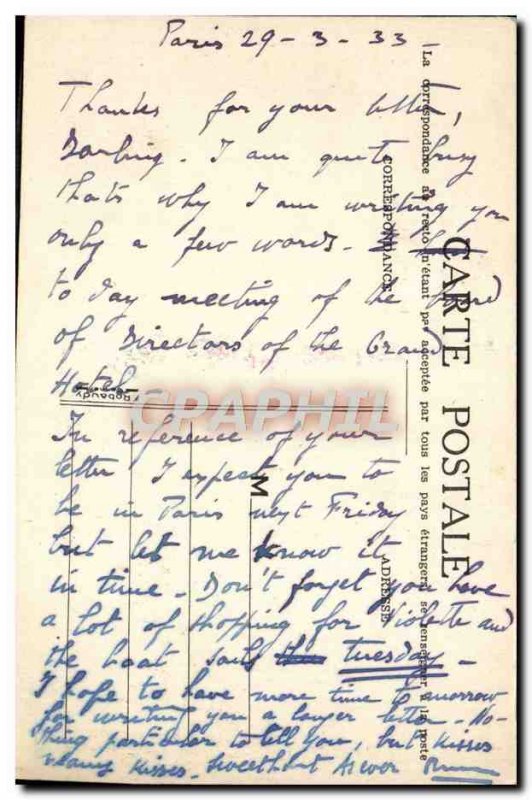 Paris 29-3-33
Thanks for your letter,
Darling. I am quite busy
thats why I am writing you
only a few words.
to day meeting of the Board
of Directors of the Grand
Hotel.
In reference of your
letter I expect you to
be in Paris next Friday
but let me know it
in time. Don't forget you have
a lot of shopping for Violette and
the boat sails Tuesday -
I hope to have more time to morrow
for writing you a longer letter. No-
thing particular to tell you, but kisses
many kisses. Sweetheart
CARTE POSTALE
La correspondance au recto n'étant pas acceptée par tous les pays étrangers, se renseigner à la poste
CORRESPONDANCE
ADRESSE
M
CPARPHIL